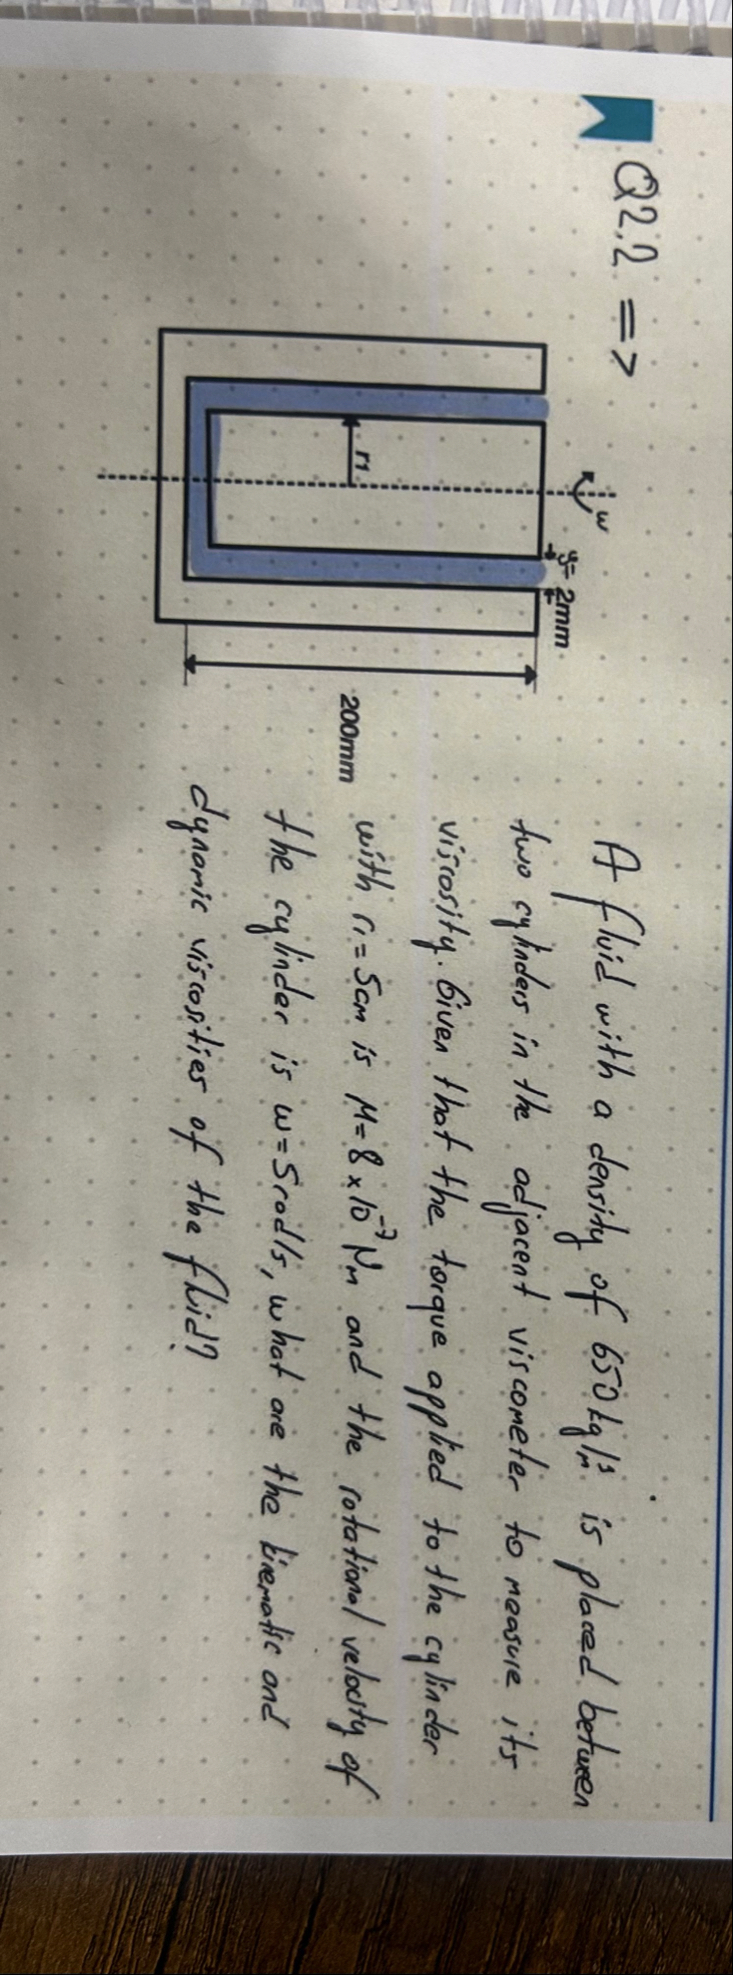 Q2.2 =>
w
y= 2mm
r1
200mm
A fluid with a density of 650 kg/m³ is placed between
two cylinders in the adjacent viscometer to measure its
viscosity. Given that the torque applied to the cylinder
with r₁ = 5cm is M = 8 x 10⁻⁷ Nm and the rotational velocity of
the cylinder is w = 5rad/s, what are the kinematic and
dynamic viscosities of the fluid?